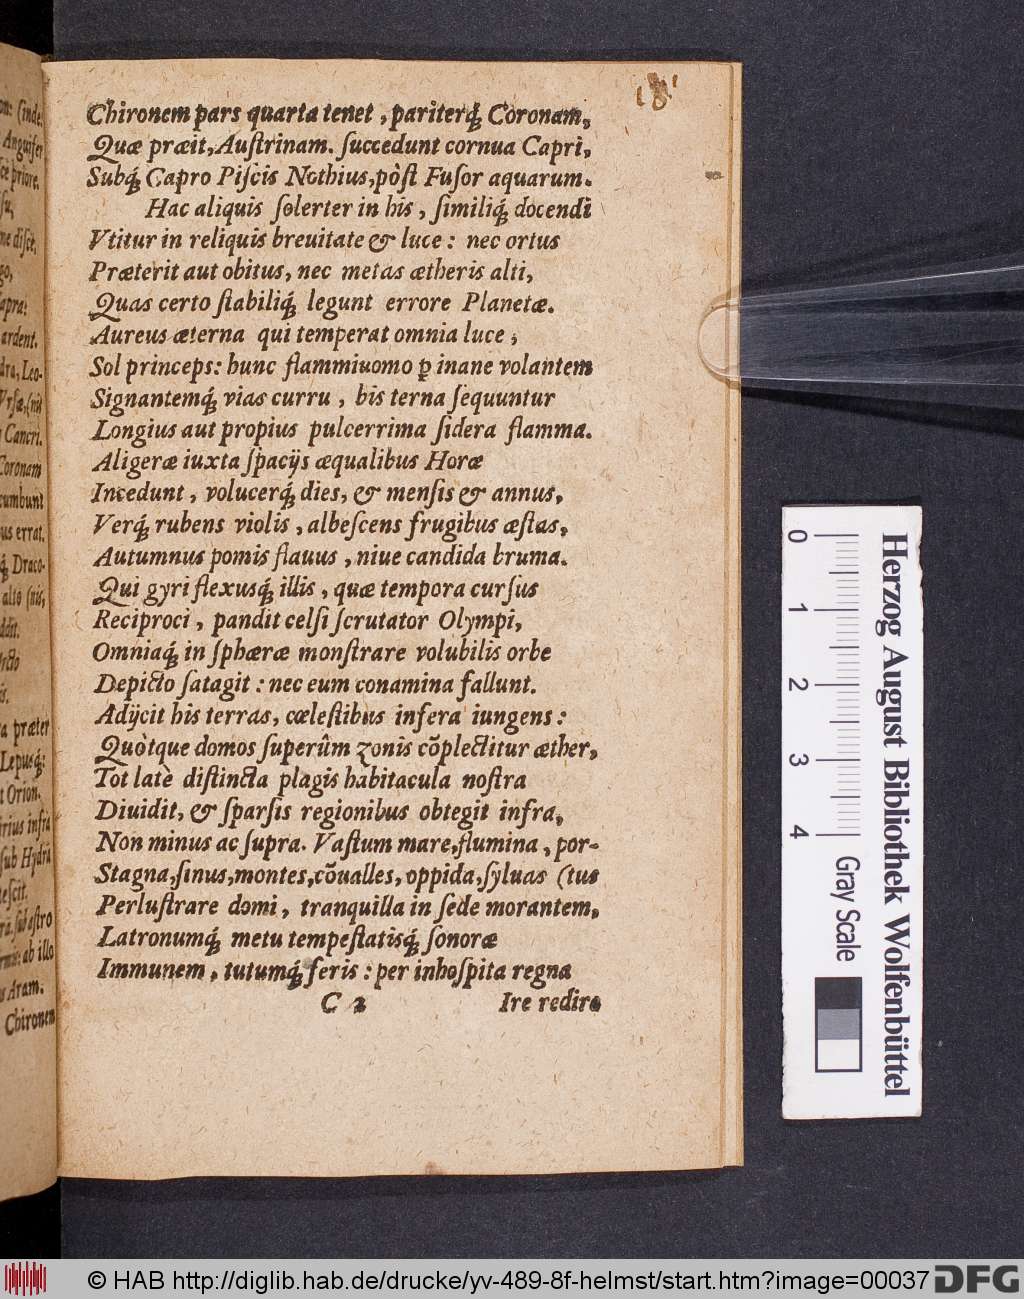 18
Chironem pars quarta tenet, pariterq́; Coronam,
Quæ præit, Auſtrinam. ſuccedunt cornua Capri,
Subq́; Capro Piſcis Nothius, pòſt Fuſor aquarum.
Hac aliquis ſolerter in his, ſimiliq́; docendi
Vtitur in reliquis breuitate & luce: nec ortus
Præterit aut obitus, nec metas ætheris alti,
Quas certo ſtabiliq́; legunt errore Planetæ.
Aureus æterna qui temperat omnia luce,
Sol princeps: hunc flammiuomo ꝑ inane volantem
Signantemq́; vias curru, bis terna ſequuntur
Longius aut propius pulcerrima ſidera flamma.
Aligeræ iuxta ſpacijs æqualibus Horæ
Incedunt, volucerq́; dies, & menſis & annus,
Verq́; rubens violis, albeſcens frugibus æſtas,
Autumnus pomis flauus, niue candida bruma.
Qui gyri flexusq́; illis, quæ tempora curſus
Reciproci, pandit celſi ſcrutator Olympi,
Omniaq́; in ſphæræ monſtrare volubilis orbe
Depicto ſatagit: nec eum conamina fallunt.
Adijcit his terras, cœleſtibus infera iungens:
Quòtque domos ſuperûm zonis cõplectitur æther,
Tot latè diſtincta plagis habitacula noſtra
Diuidit, & ſparſis regionibus obtegit infra,
Non minus ac ſupra. Vaſtum mare, flumina, por-
Stagna, ſinus, montes, cõualles, oppida, ſyluas (tus
Perluſtrare domi, tranquilla in ſede morantem,
Latronumq́; metu tempeſtatisq́; ſonoræ
Immunem, tutumq́; feris: per inhoſpita regna
C 2 Ire redire
ſinde:
Anguifer
priore.
ardent.
Leo-
Cancri.
Coronam
cumbunt
us errat.
Draco-
alto
præter
Lepusq́;
Orion.
irius infra
ſub Hydrã
ab illo
Aram.
Chironem
Herzog August Bibliothek Wolfenbüttel
0 1 2 3 4 Gray Scale
© HAB http://diglib.hab.de/drucke/yv-489-8f-helmst/start.htm?image=00037 DFG